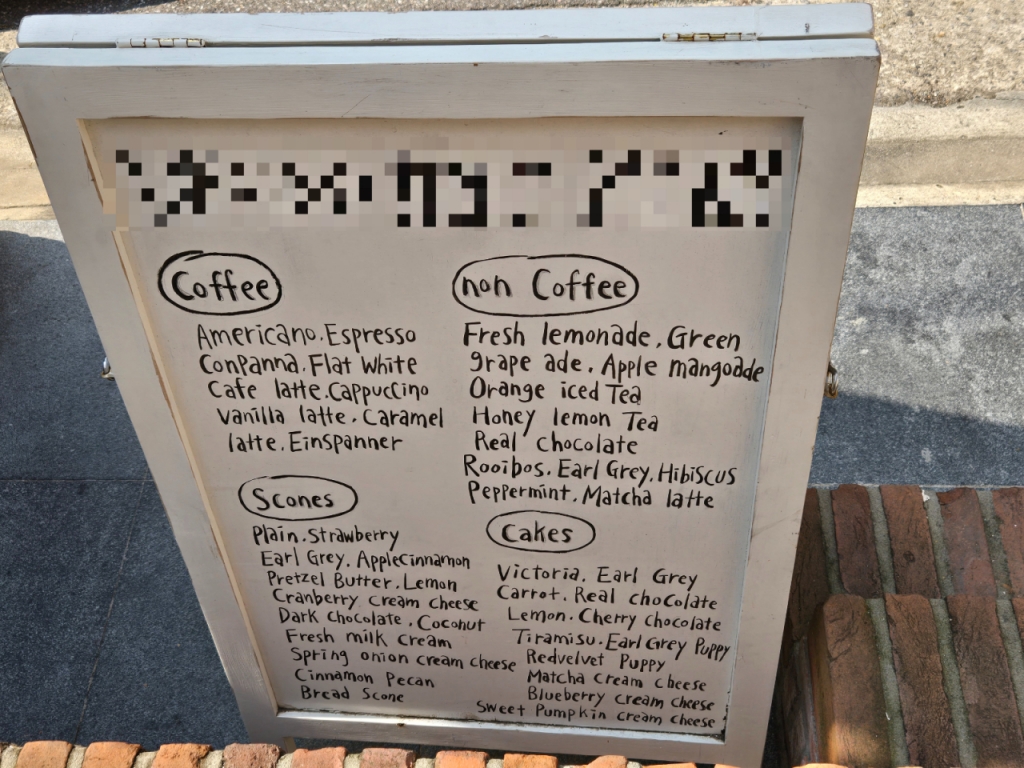 Coffee
Americano. Espresso
Conpanna. Flat White
Cafe latte. Cappuccino
Vanilla latte. Caramel
latte. Einspanner
non Coffee
Fresh lemonade. Green
grape ade. Apple mangoade
Orange iced Tea
Honey lemon Tea
Real Chocolate
Rooibos. Earl Grey. Hibiscus
Peppermint. Matcha latte
Scones
Plain. Strawberry
Earl Grey. Applecinnamon
Pretzel Butter. Lemon
Cranberry cream cheese
Dark chocolate. Coconut
Fresh milk cream
Spring onion cream cheese
Cinnamon Pecan
Bread Scone
Cakes
Victoria. Earl Grey
Carrot. Real chocolate
Lemon. Cherry chocolate
Tiramisu. Earl Grey Puppy
Redvelvet Puppy
Matcha cream cheese
Blueberry cream cheese
Sweet Pumpkin cream cheese